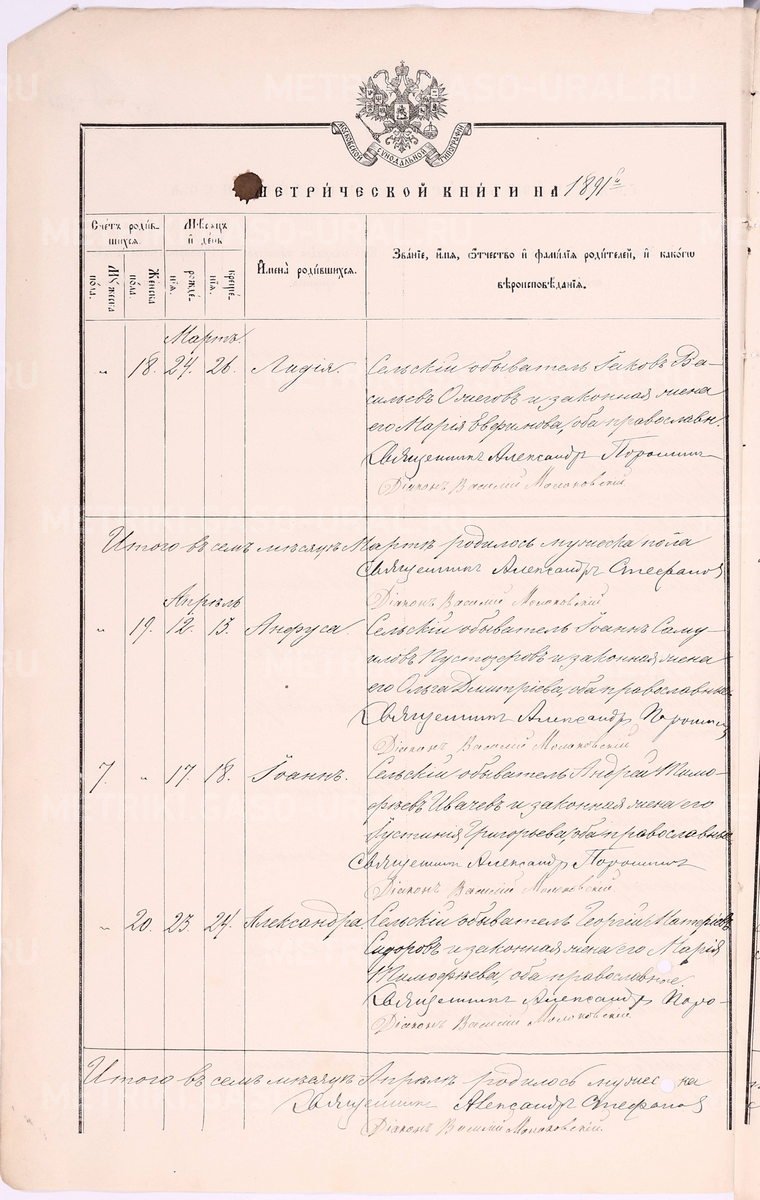 МОСКОВСКОЙ СѴНОДАЛЬНОЙ ТИПОГРАФІИ
МЕТРИЧЕСКОЙ КНИГИ НА 1891 г.
Счетъ родив-
шихся.
Мѣсяцъ
и день
Имена родившихся.
Званіе, имя, отчество и фамилія родителей, и какого
вѣроисповѣданія.
Мужеска
пола.
Женска
пола.
рожде-
нія.
креще-
нія.
Мартъ.
„ 18. 24. 26. Лидія. Сельскій обыватель Іаковъ Ва-
сильевъ Ожеговъ и законная жена
его Марія Евфимова, оба православн.
Священникъ Александръ Порошинъ
Діаконъ Василій Молоковскій
Итого въ семъ мѣсяцѣ Мартѣ родилось мужеска пола
Священникъ Александръ Стефанов
Діаконъ Василій Молоковскій
Апрѣль
„ 19. 12. 13. Анфуса. Сельскій обыватель Іоаннъ Саму-
иловъ Пустозеровъ и законная жена
его Ольга Дмитріева, оба православные
Священникъ Александръ Порошинъ
Діаконъ Василій Молоковскій
7. „ 17. 18. Іоаннъ. Сельскій обыватель Андрей Тимо-
фѣевъ Ивачевъ и законная жена его
Іустинія Григорьева, оба православные
Священникъ Александръ Порошинъ
Діаконъ Василій Молоковскій
„ 20. 23. 24. Александра Сельскій обыватель Георгій
Сидоровъ и законная жена его Марія
Тимофѣева, оба православные.
Священникъ Александръ Поро-
Діаконъ Василій Молоковскій
Итого въ семъ мѣсяцѣ Апрѣлѣ родилось мужес ка
Священникъ Александръ Стефанов
Діаконъ Василій Молоковскій.